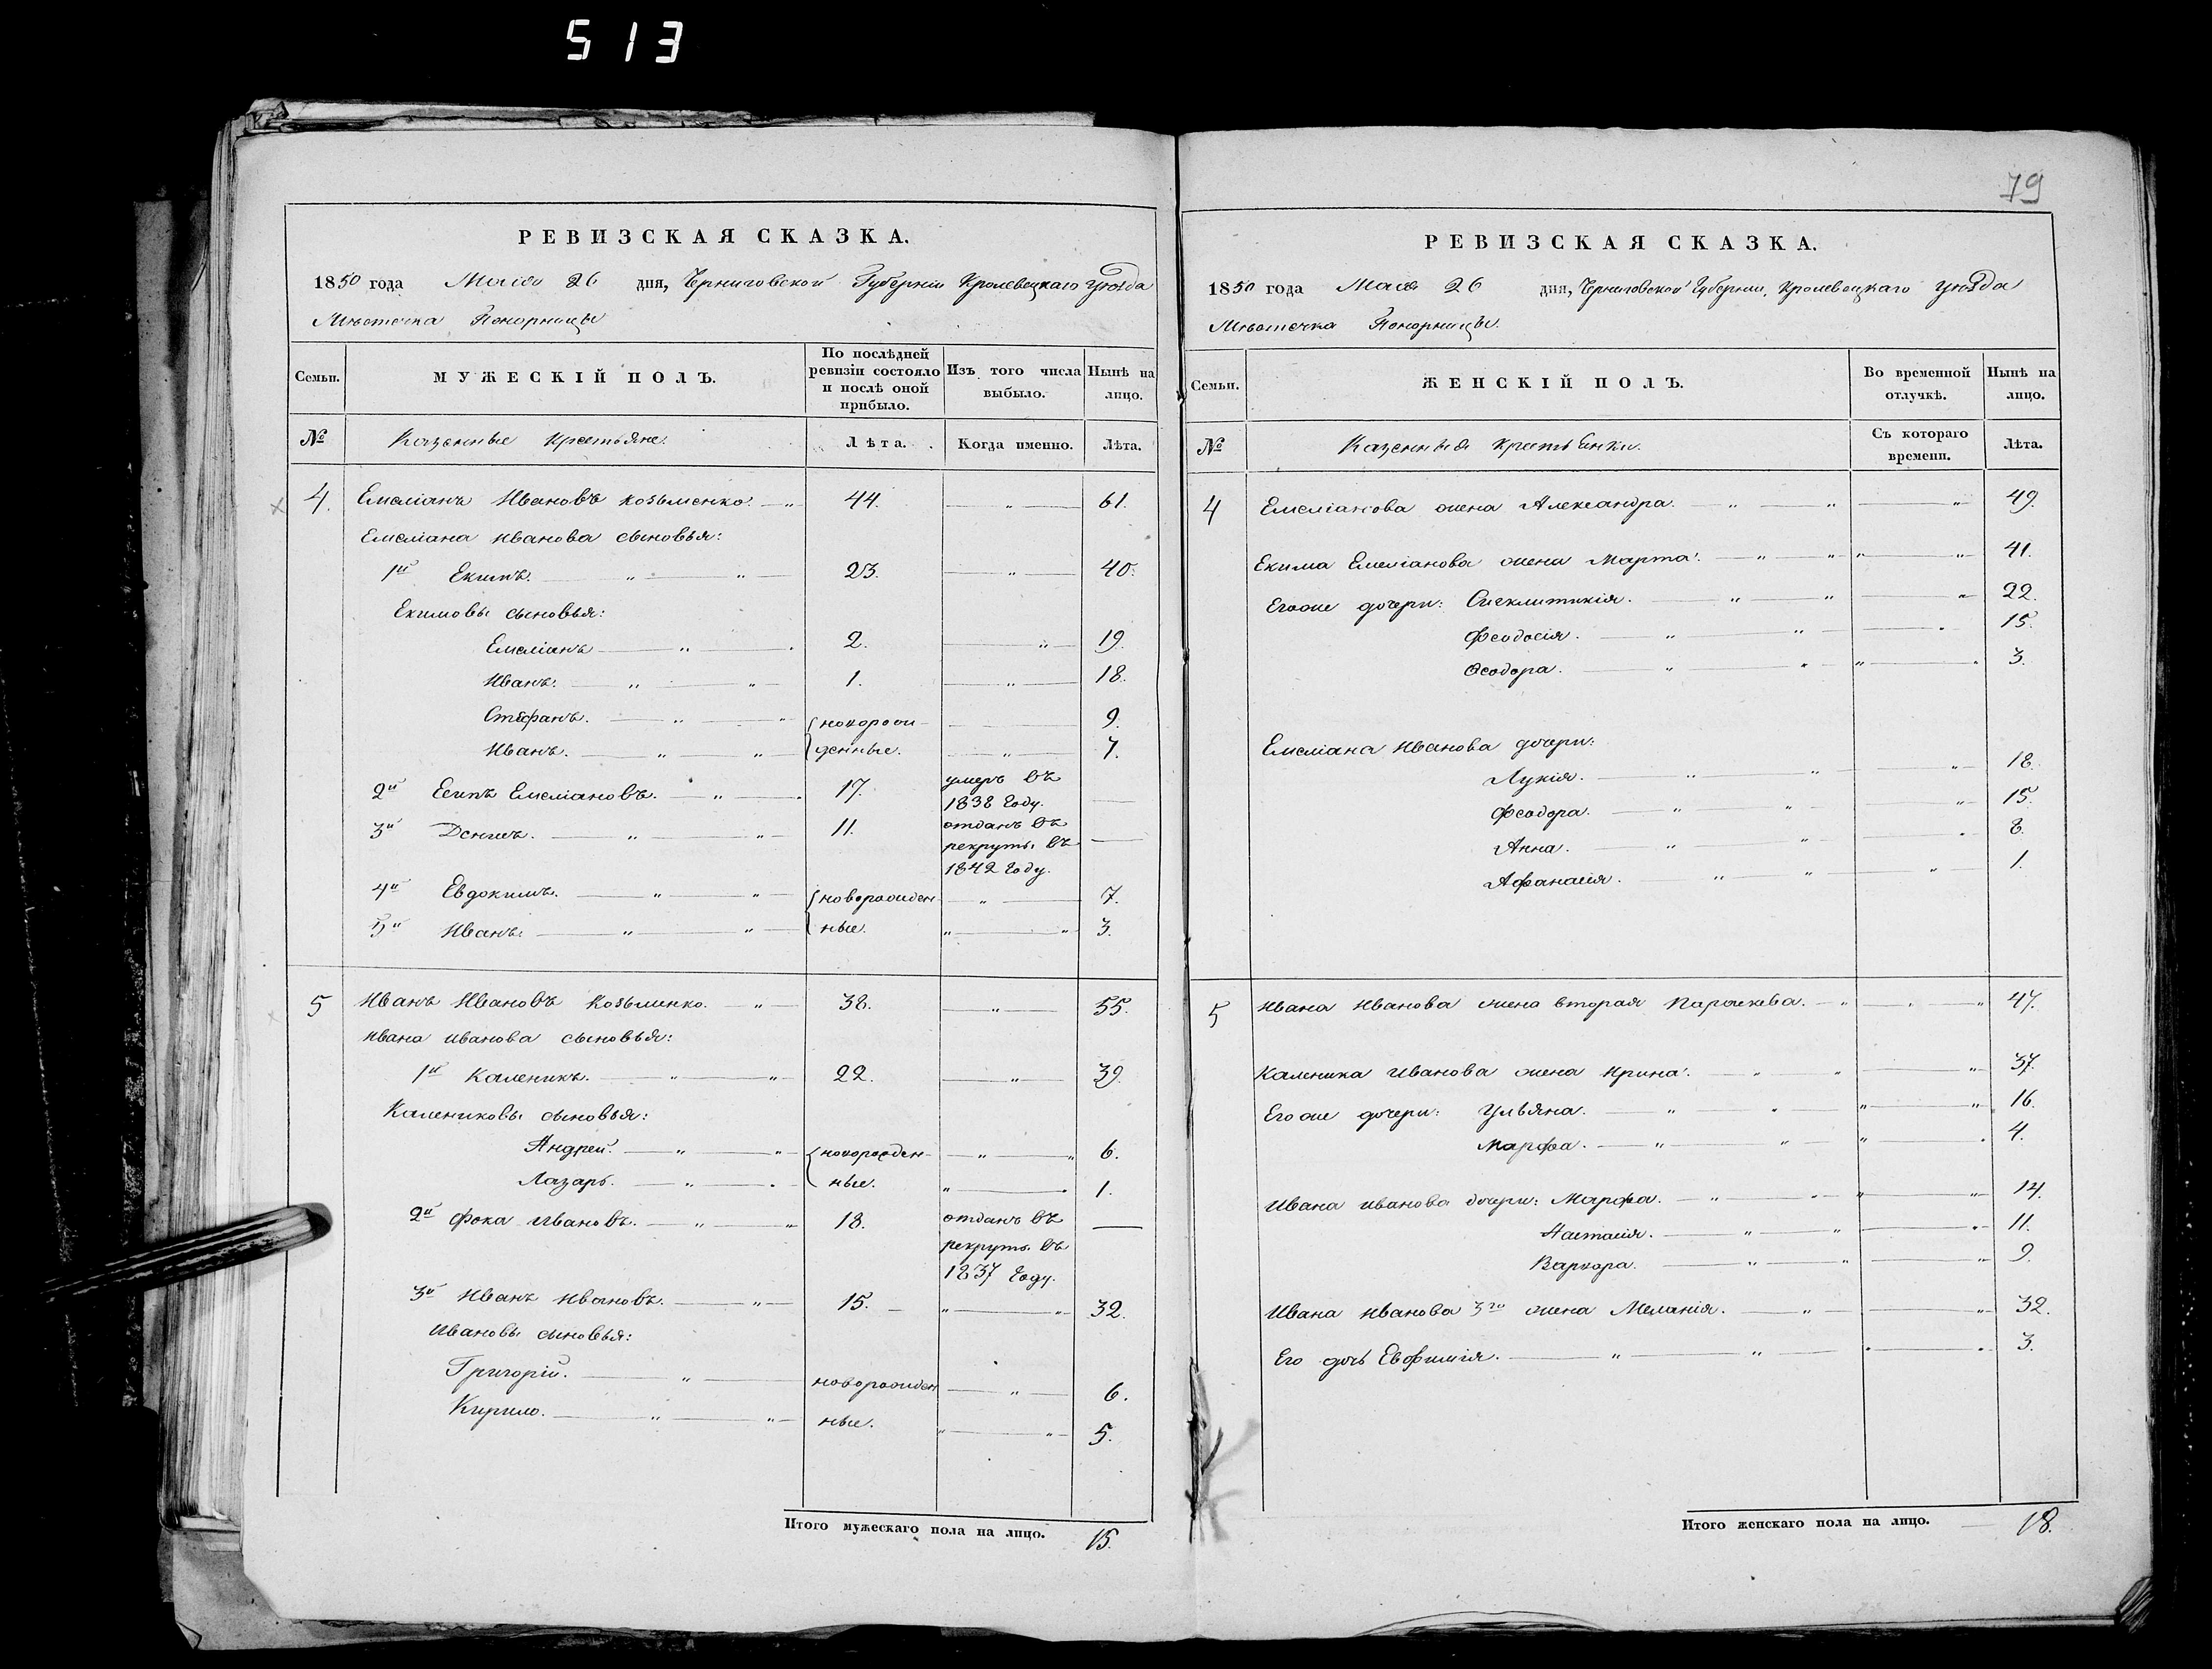 513
79
РЕВИЗСКАЯ СКАЗКА.
1850 года Маія 26 дня, Черниговской Губерніи Кролевецкаго уѣзда
Мѣстечка Понорницы
Семьи. МУЖЕСКІЙ ПОЛЪ. По послѣдней ревизіи состояло и послѣ оной прибыло. Изъ того числа выбыло. Нынѣ на лицо.
№ Казенные крестьяне. Лѣта. Когда именно. Лѣта.
4. Емеліанъ Ивановъ Козьменко. 44. 61.
Емеліана Иванова сыновья:
1й Екимъ. 23. 40.
Екимовы сыновья:
Емеліанъ 2. 19.
Иванъ. 1. 18.
Стефанъ. новорож- 9.
Иванъ. денные. 7.
2й Есипъ Емеліановъ. 17. умеръ въ 1838 году.
3й Денисъ. 11. отданъ въ рекруты въ 1842 году.
4й Евдокимъ. новорожден- 7.
5й Иванъ. ные. 3.
5 Иванъ Ивановъ Козьменко. 38. 55.
Ивана Иванова сыновья:
1й Каленикъ. 22. 39.
Калениковы сыновья:
Андрей. новорожден- 6.
Лазарь. ные. 1.
2й Фока Ивановъ. 18. отданъ въ рекруты въ 1837 году.
3й Иванъ Ивановъ. 15. 32.
Ивановы сыновья:
Григорій. новорожден 6.
Кирило. ные. 5.
Итого мужескаго пола на лицо. 15.
РЕВИЗСКАЯ СКАЗКА.
1850 года Маія 26 дня, Черниговской Губерніи, Кролевецкаго уѣзда
Мѣстечка Понорницы.
Семьи. ЖЕНСКІЙ ПОЛЪ. Во временной отлучкѣ. Нынѣ на лицо.
№ Казенныя крестьянки. Съ котораго времени. Лѣта.
4 Емеліанова жена Александра. 49.
Екима Емеліанова жена Марта. 41.
Егоже дочери: Сиклитикія. 22.
Феодосія. 15.
Ѳеодора. 3.
Емеліана Иванова дочери:
Лукія. 18.
Феодора. 15.
Анна. 8.
Афанасія. 1.
5 Ивана Иванова жена вторая Параскева. 47.
Каленика Иванова жена Ирина. 37.
Егоже дочери: Ульяна. 16.
Марфа. 4.
Ивана Иванова дочери: Марфа. 14.
Настасія. 11.
Варвора. 9.
Ивана Иванова 3го жена Меланія. 32.
Его дочь Евфимія. 3.
Итого женскаго пола на лицо. 18.